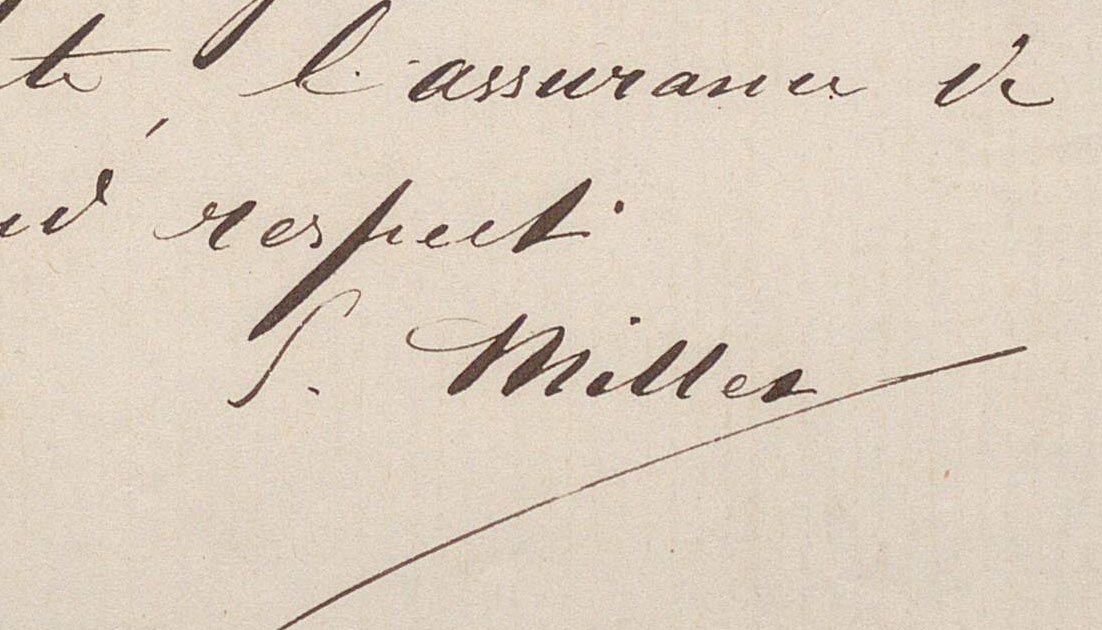 te, l'assurance de
respect
S. Miller